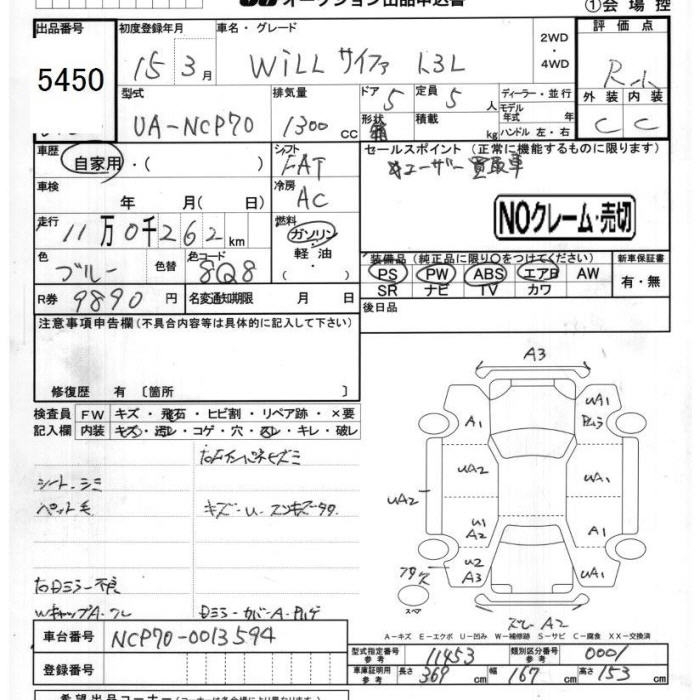 オークション出品申込書
①会場控
出品番号
5450
初度登録年月
15 3月
車名・グレード
WiLL サイファ 1.3L
2WD
・
4WD
評価点
R-小
型式
UA-NCP70
排気量
1300 CC
ドア
5
定員
5 人
形状
箱
積載
kg
ディーラー・並行
モデル年式 年
ハンドル 左・右
外装 内装
C C
車歴
自家用・( )
シフト
FAT
セールスポイント (正常に機能するものに限ります)
ユーザー買取車
車検
年 月( 日)
冷房
AC
NOクレーム・売切
走行
11万0千262km
燃料
ガソリン
・
軽油
・
( ・ )
色
ブルー
色替
色コード
8Q8
装備品 (純正品に限り○をつけてください)
新車保証書
PS PW ABS エアB AW
SR ナビ TV カワ
有・無
R券 9890円
名変通知期限 月 日
後日品
注意事項申告欄(不具合内容等は具体的に記入して下さい)
修復歴 有 〔箇所 〕
検査員記入欄
FW キズ・飛石・ヒビ割・リペア跡・×要
内装 キズ・汚レ・コゲ・穴・スレ・キレ・破レ
右Fインパネヒズミ
シート・シミ
ペット毛
キズ・U・
右Dミラー不良
WキャップA・ワレ
Dミラーカバー・A・ハゲ
A3
A1
UA1
UA2
UA2
UA1
U1
A2
A1
U2
A3
UA1
スペ
A2
A-キズ E-エクボ U-凹み W-補修跡 S-サビ C-腐食 XX-交換済
車台番号 NCP70-0013594
登録番号
型式指定番号 参考 11453
類別区分番号 参考 0001
車庫証明用 参考 長さ 369 cm 幅 167 cm 高さ 153 cm
希望出品コーナー